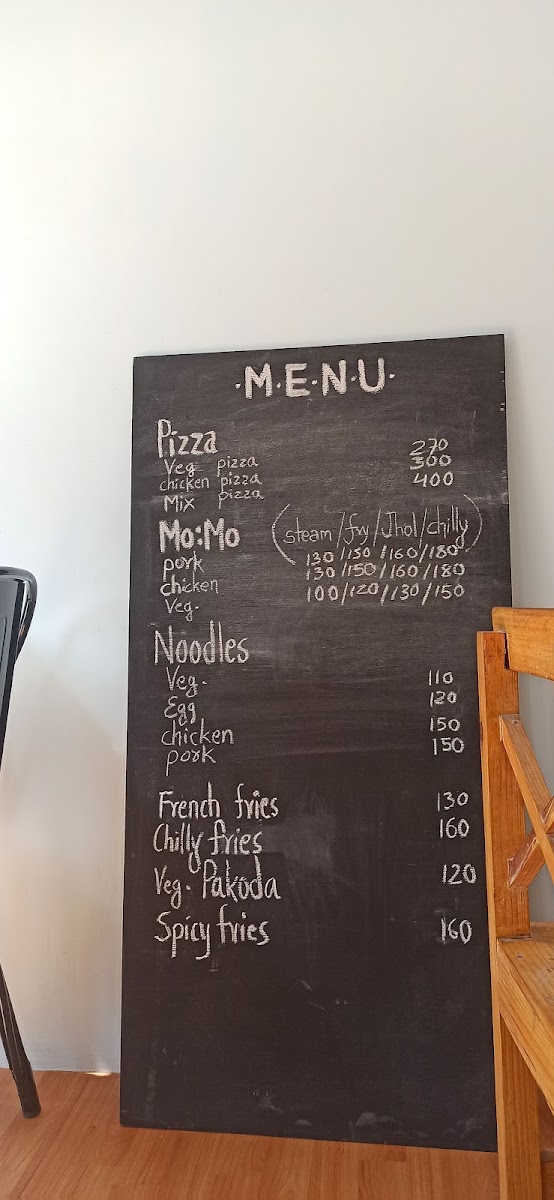 ·M·E·N·U·
Pizza
Veg pizza 270
chicken pizza 300
Mix pizza 400
Mo:Mo (steam/fry/Jhol/chilly)
pork 130/150/160/180
chicken 130/150/160/180
Veg. 100/120/130/150
Noodles
Veg. 110
Egg 120
chicken 150
pork 150
French fries 130
Chilly fries 160
Veg. Pakoda 120
Spicy fries 160